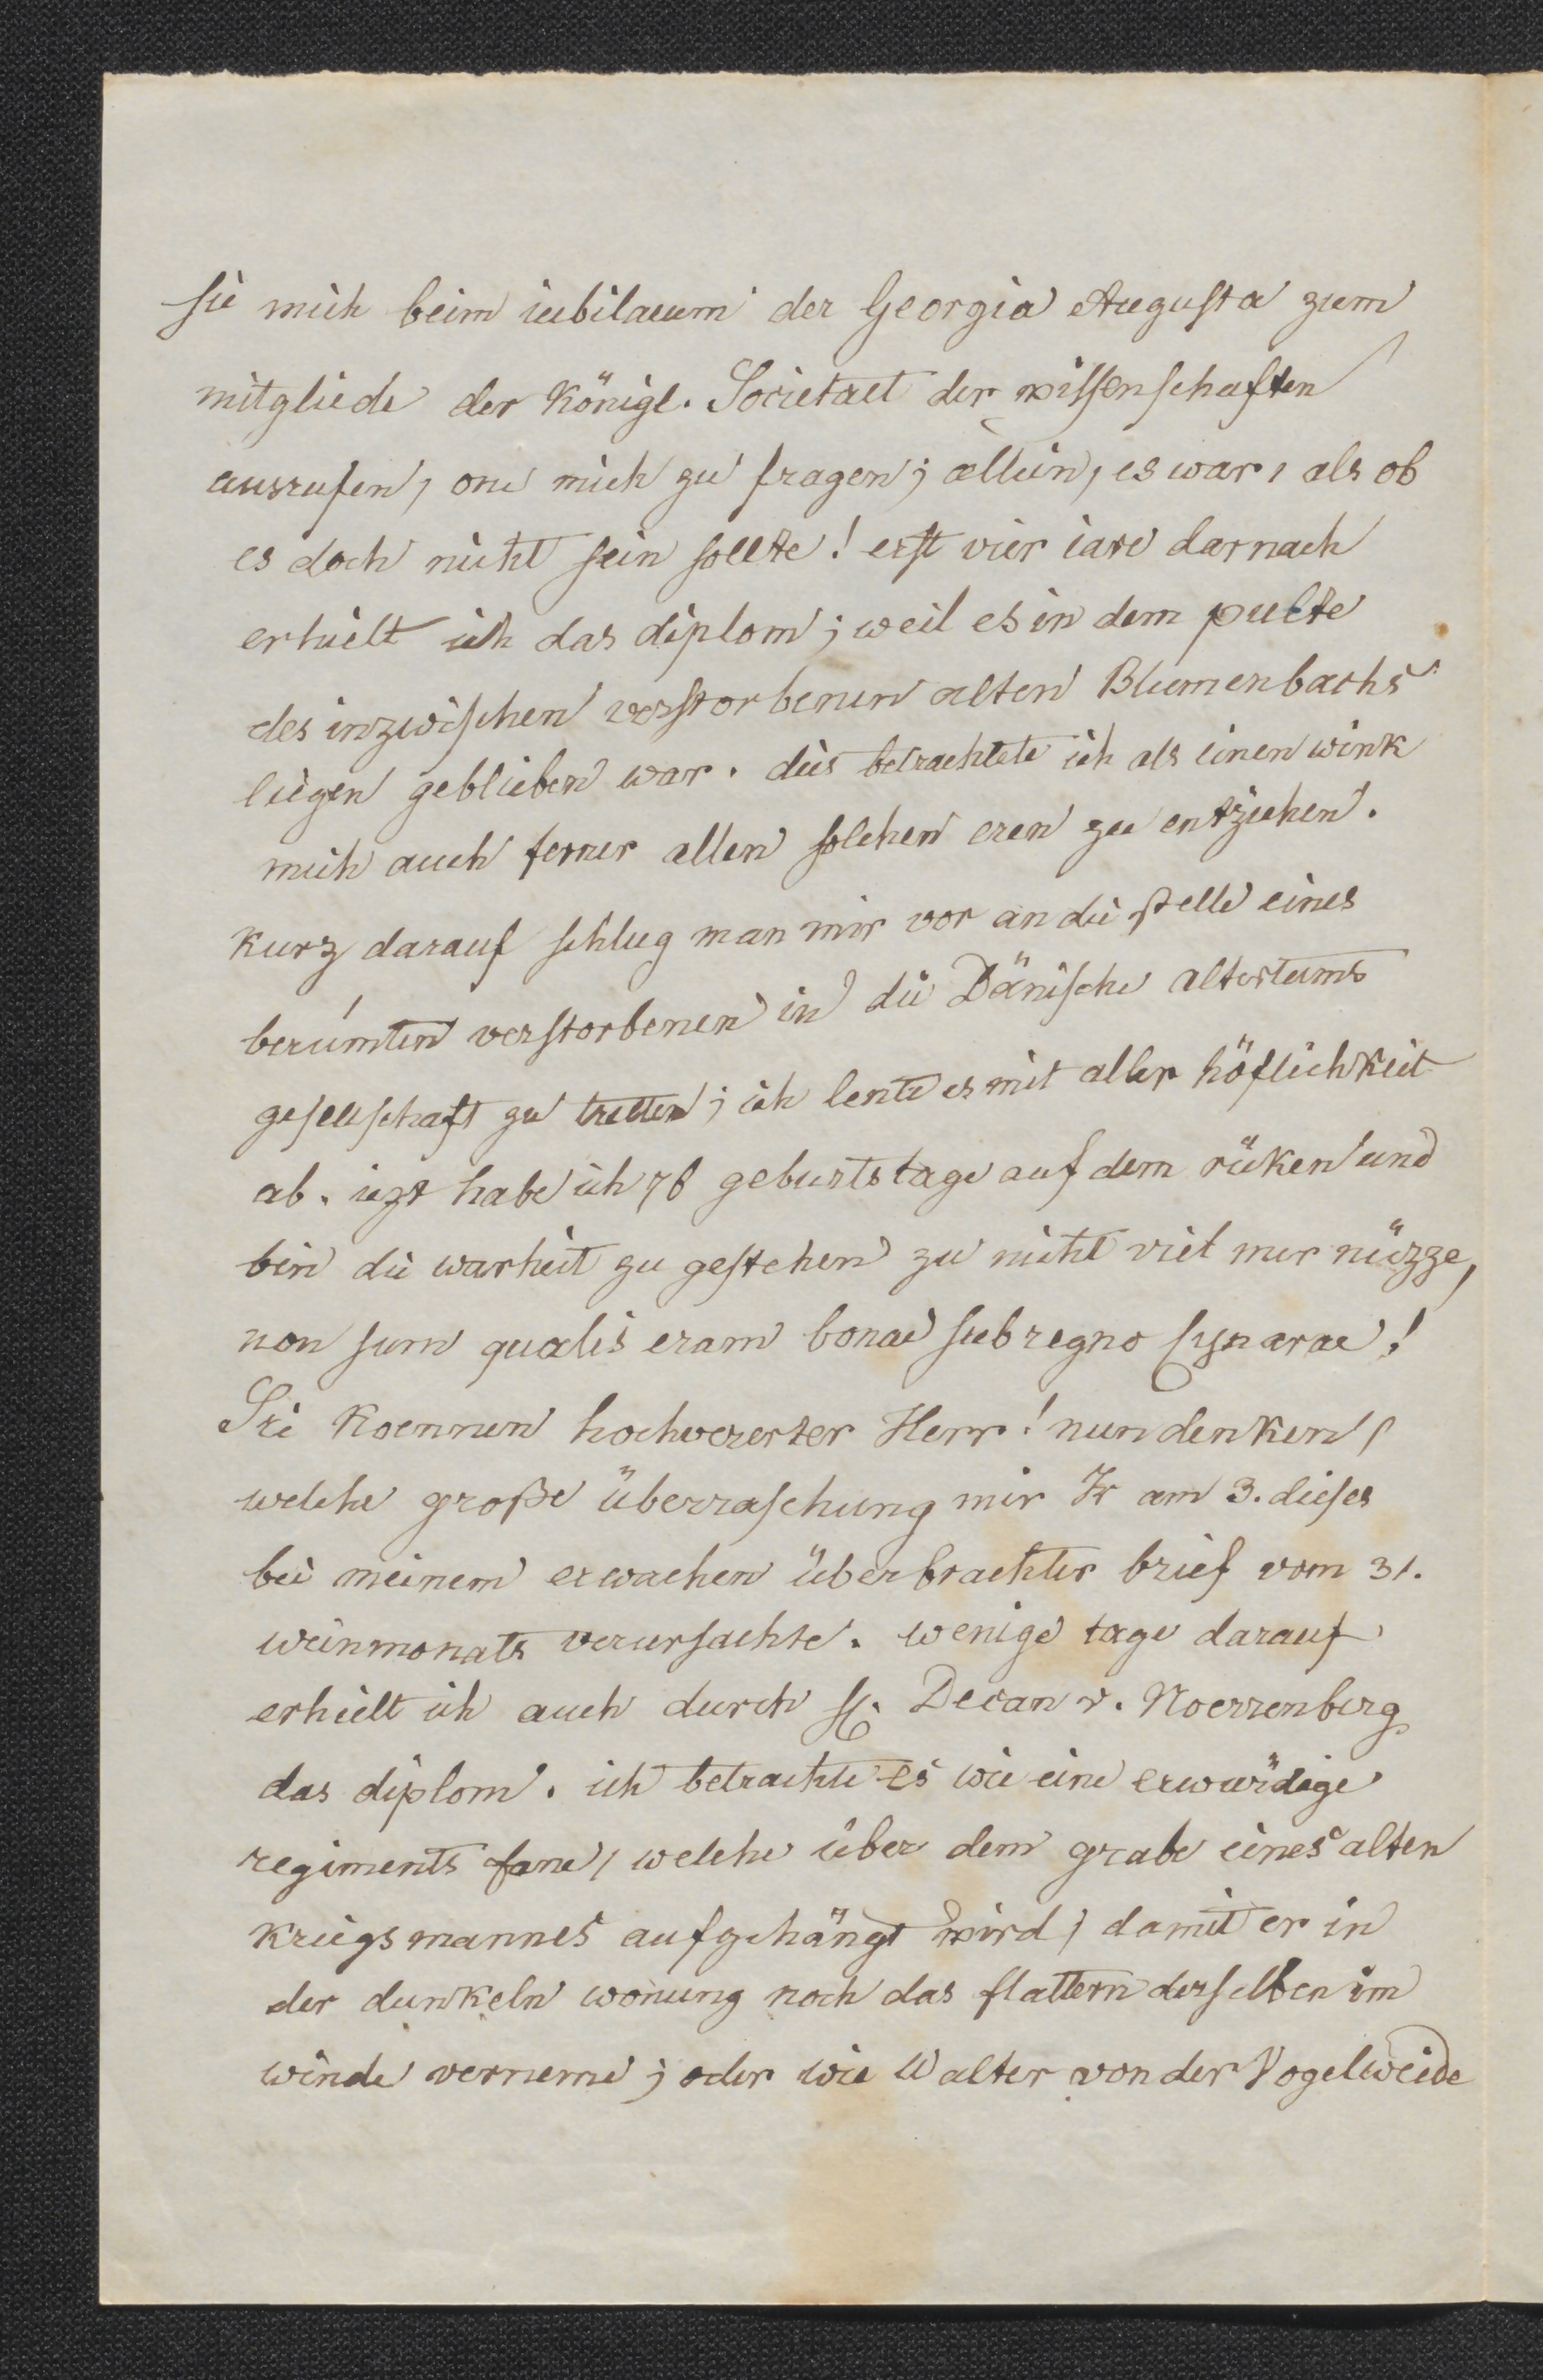 sie mich beim iubilaeum der Georgia Augusta zum
mitgliede der Königl. Societaet der wissenschaften
ausrufen, one mich zu fragen; allein, es war, als ob
es doch nicht sein sollte! erst vier iare darnach
erhielt ich das diplom; weil es in dem pulte
des inzwischen verstorbenen alten Blumenbachs
liegen geblieben war. dies betrachtete ich als einen wink
mich auch ferner allen solchen eren zu entziehen.
kurz darauf schlug man mir vor an die stelle eines
berúmten verstorbenen in die Dänische altertums
gesellschaft zu tretten; ich lente es mit aller höflichkeit
ab. iezt habe ich 78 geburtstage auf dem rüken und
bin die warheit zu gestehen zu nicht viel mer nüzze,
non sum qualis eram bonae sub regno Cynarae!
Sie koennen hochvererter Herr! nun denken,
welche große überraschung mir Ir am 3. dieses
bei meinem erwachen überbrachter brief vom 31.
weinmonats verursachte. wenige tage darauf
erhielt ich auch durch H. Decan v. Noerrenberg
das diplom. ich betrachte es wie eine erwürdige
regiments fane, welche über dem grabe eines alten
kriegsmannes aufgehängt wird, damit er in
der dunkeln wonung noch das flattern derselben im
winde verneme; oder wie Walter von der Vogelweide